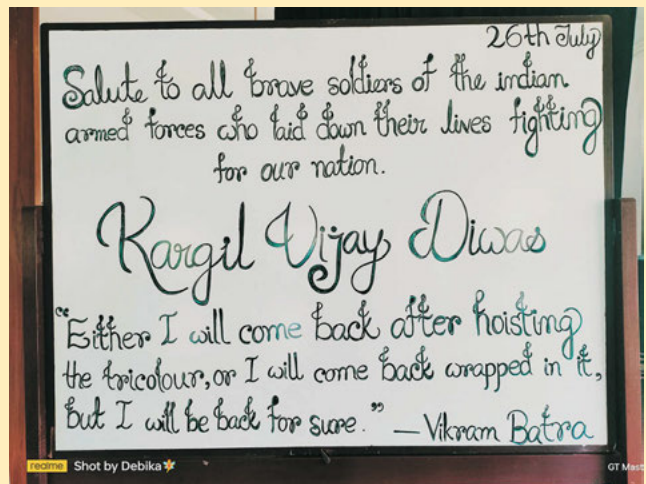 26th July
Salute to all brave soldiers of the indian
armed forces who laid down their lives fighting
for our nation.
Kargil Vijay Diwas
“Either I will come back after hoisting
the tricolour, or I will come back wrapped in it,
but I will be back for sure.” — Vikram Batra
realme Shot by Debika GT Mast